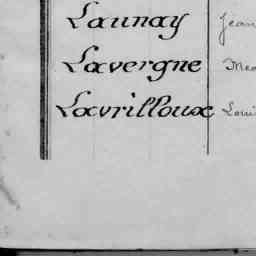 Launay Jean
Lavergne
Lavrilloux Loui